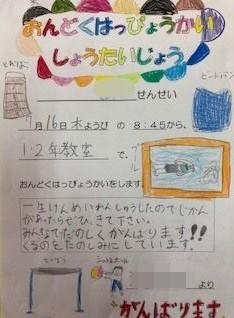 おんどくはっぴょうかい
しょうたいじょう
とびばこ
ビートバン
せんせい
7月16日木ようび の 8:45から、
1・2年教室 で、
プール
おんどくはっぴょうかいをします。
一生けんめいれんしゅうしたのでじかん
があったらぜひ、きて下さい。
みんなでたのしくがんばります!!
くるのをたのしみにしています。
てつぼう
より
がんばります。